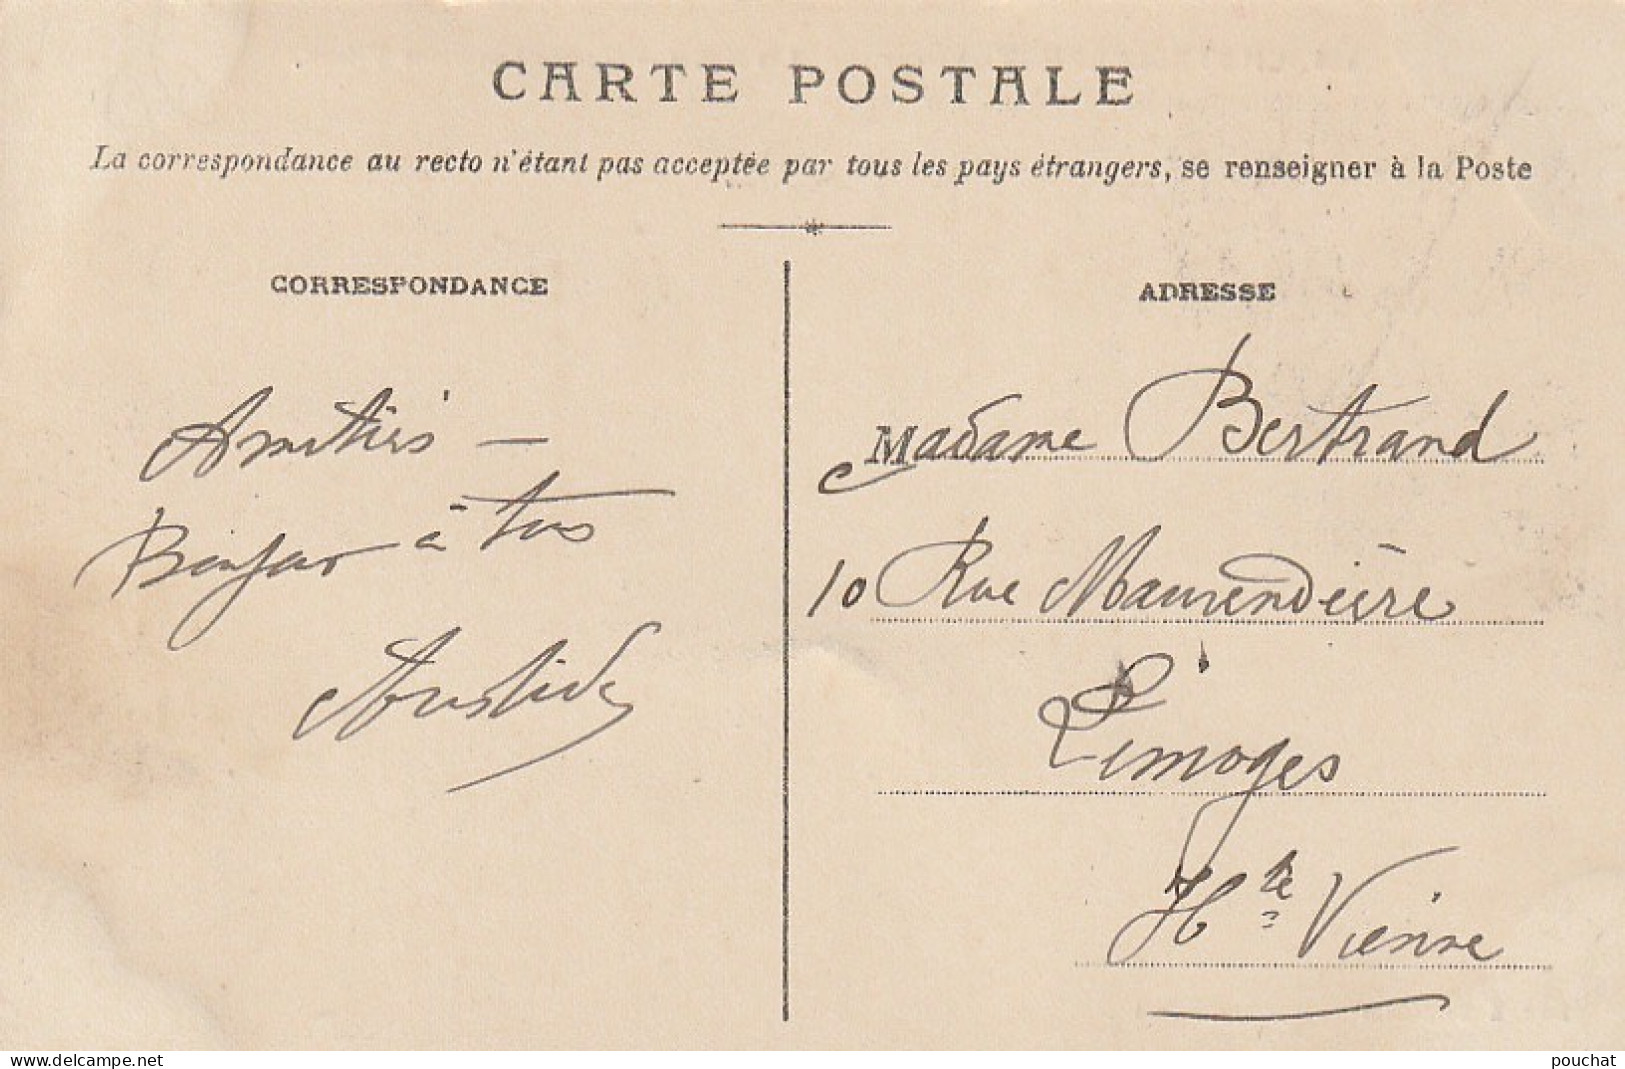 CARTE POSTALE
La correspondance au recto n'étant pas acceptée par tous les pays étrangers, se renseigner à la Poste
CORRESPONDANCE
Amitiés —
Bonjour à tous
Aristide
ADRESSE
Madame Bertrand
10 Rue
Limoges
Hte Vienne
www.delcampe.net
pouchat